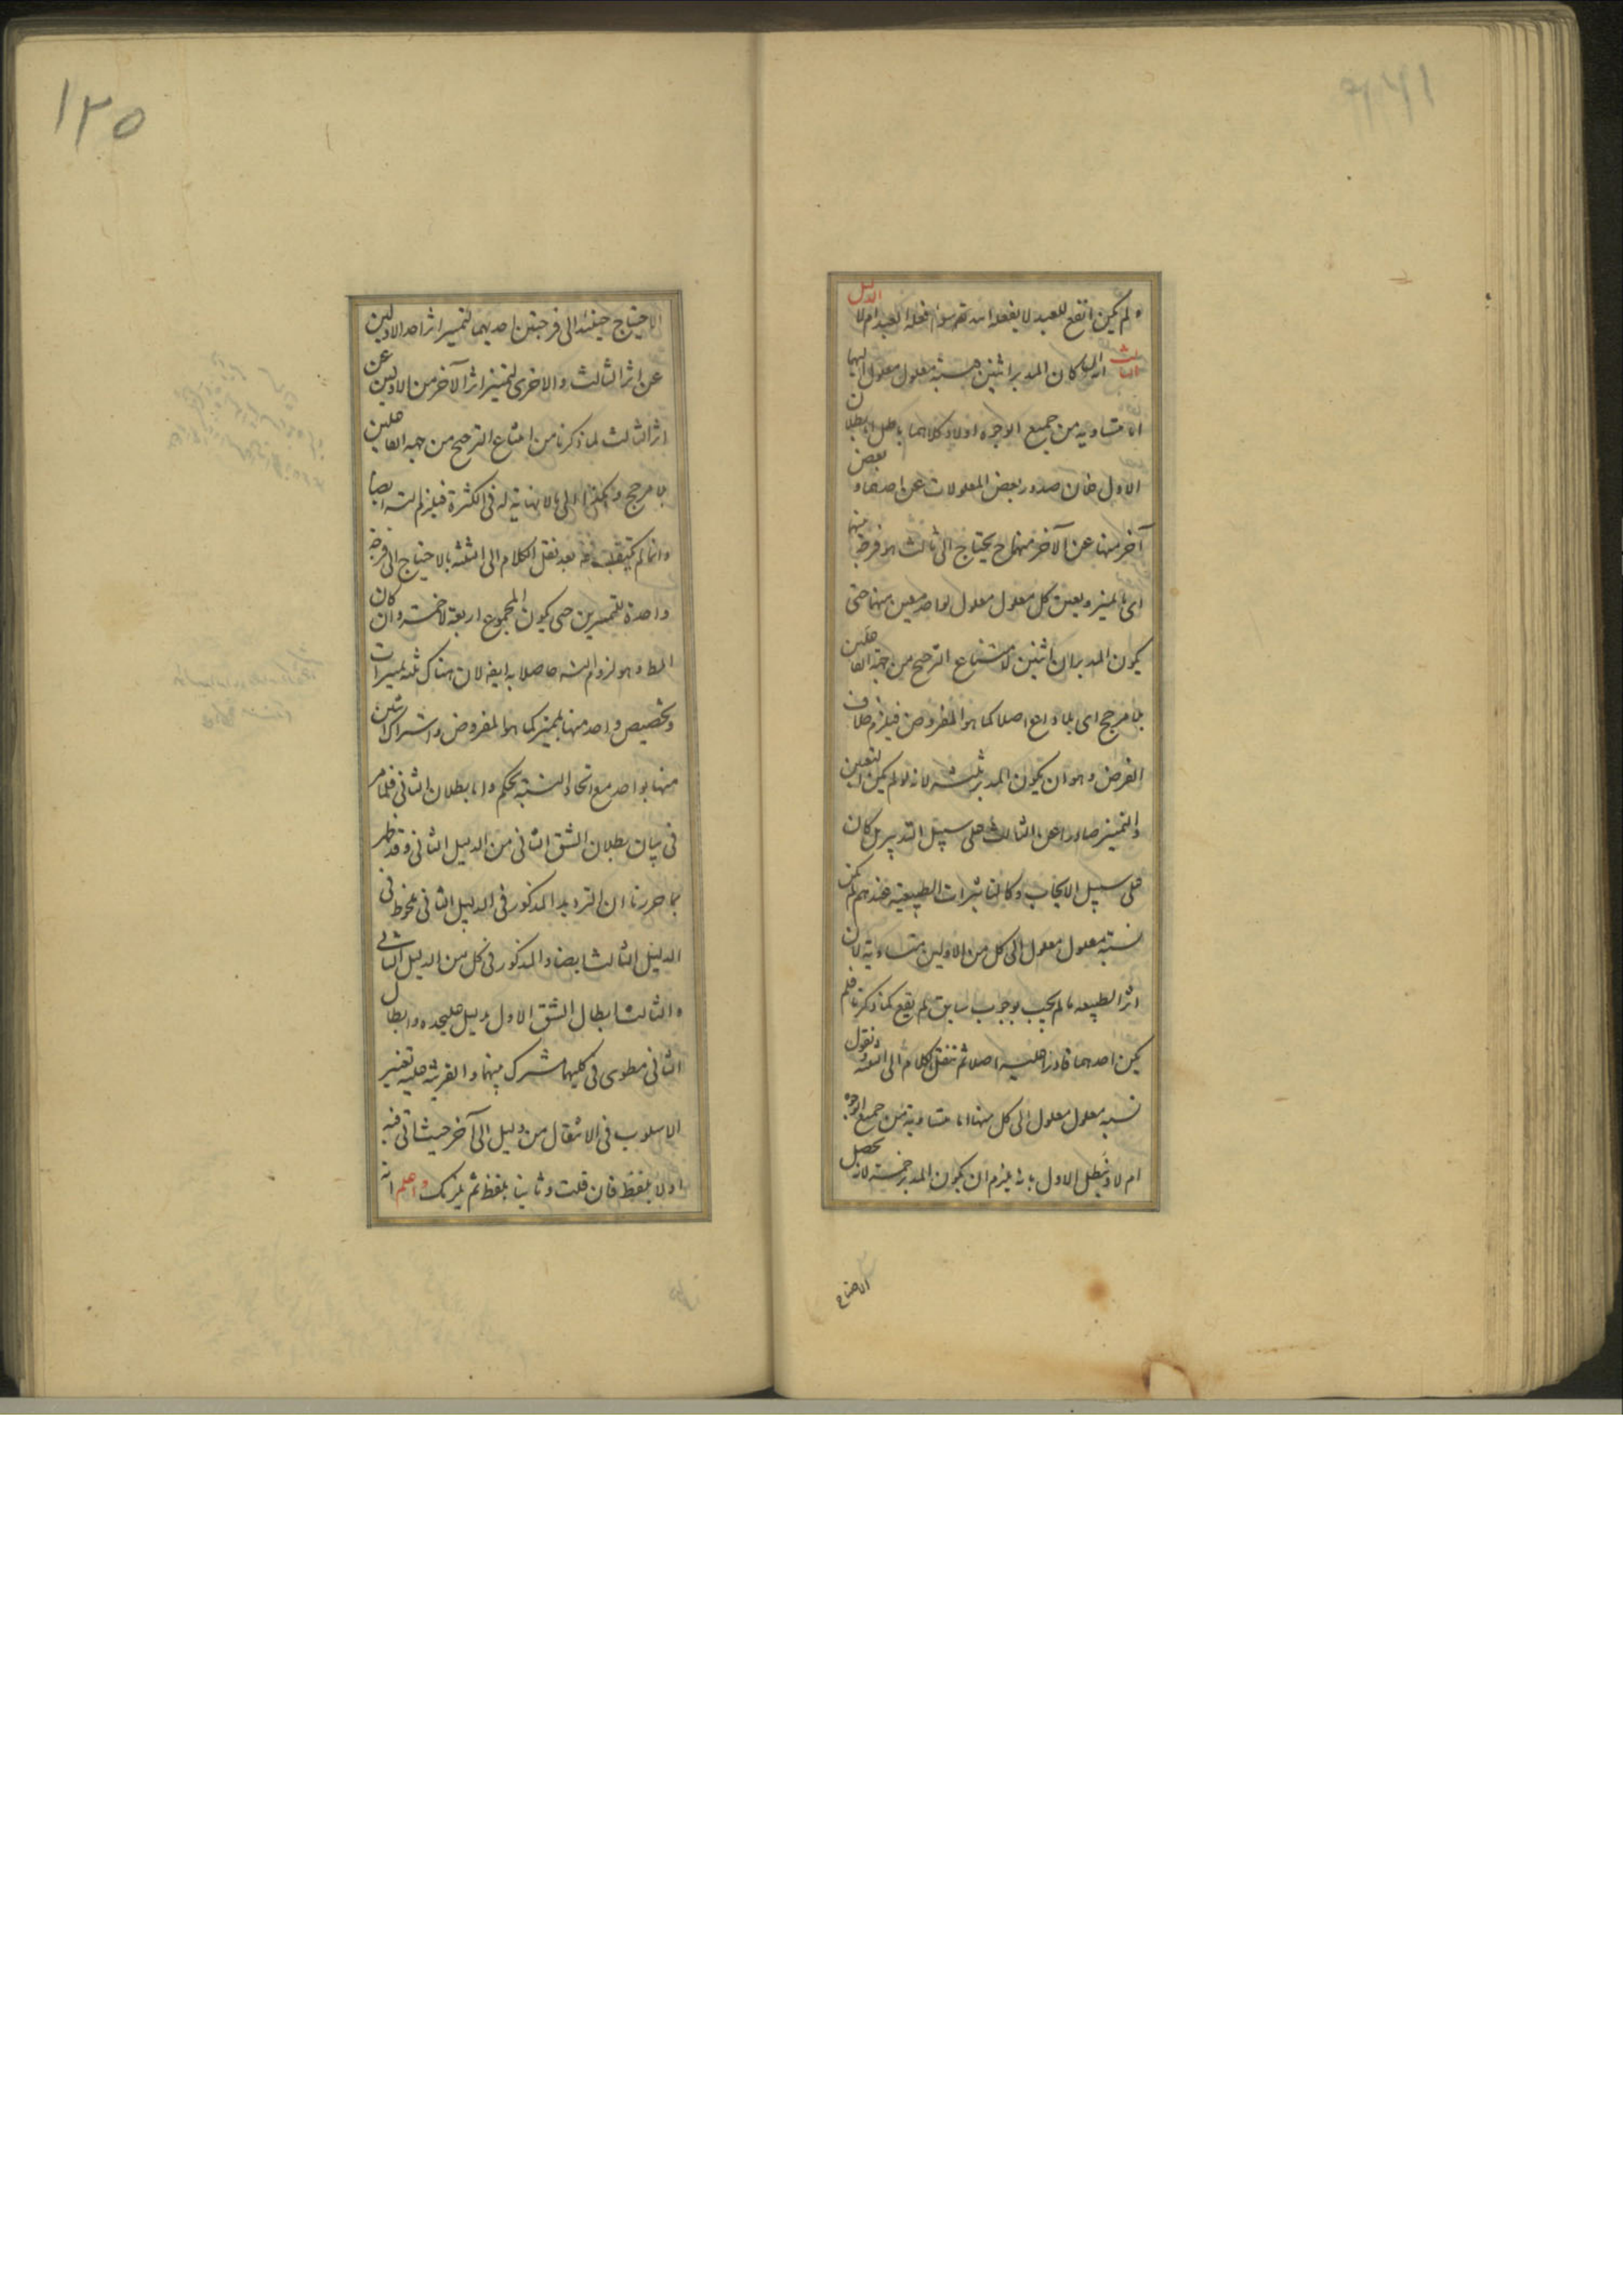 ولم يكن انفع للعبد لا يفعله الله تعم سواء فعله العبد ام لا الدليل
الثالث انه لو كان المدبر اثنين فنسبة معلول معلول اليهما
اما متساوية من جميع الوجوه اولا وكلاهما باطل اما بطلان
الاول فلان صدور بعض المعلولات عن احدهما و بعض
آخر منها عن الآخر منهما ح يحتاج الى ثالث هو فرجة بينهما
اى ما يميز ويعين كل معلول معلول لواحد معين منهما حتى
يكون المدبران اثنين لامتناع الترجيح من جهة الفاعلين
بلا مرجح اى بلا داع اصلا كما هو المفروض فيلزم خلاف
الفرض وهو ان يكون المدبر ثلثة لانه لو لم يكن التعيين
والتميز صادرا عن الثالث على سبيل التدبير بل كان
على سبيل الايجاب وكالتاثيرات الطبيعية عندهم لم يكن
نسبة معلول معلول الى كل من الاولين متساوية لان
اثر الطبيعة ما لم يجب بوجوب سابق لم يقع كما ذكرنا فلم
يكن احدهما قادرا عليه اصلا ثم ننقل الكلام الى الثلثة ونقول
نسبة معلول معلول الى كل منها اما متساوية من جميع الوجوه
ام لا ونبطل الاول بانه يلزم ان يكون المدبر خمسة لانه يحصل
الاحتياج
١٢٥
الاحتياج حينئذ الى فرجتين احديهما لتميز اثر احد الاولين
عن اثر الثالث والاخرى لتميز اثر الآخر من الاولين عن
اثر الثالث لما ذكرنا من امتناع الترجيح من جهة الفاعلين
بلا مرجح وهكذا الى ما لا نهاية له فى الكثرة فيلزم التسه ايضا
وانما لم يكتف بعد نقل الكلام الى الثلثة بالاحتياج الى فرجة
واحدة للتميزين حتى يكون المجموع اربعة لا خمسة وان كان
المط وهو لزوم التسه حاصلا به ايضه لان هناك ثلثة تميزات
وتخصيص واحد منها بمميز كما هو المفروض واشتراك اثنين
منها بواحد مع اتحاد النسبة تحكم واما بطلان الثانى فلما مر
فى بيان بطلان الشق الثانى من الدليل الثانى وقد ظهر
بما حررنا ان الترديد المذكور فى الدليل الثانى ملحوظ فى
الدليل الثالث ايضا والمذكور فى كل من الدليل الثانى
والثالث ابطال الشق الاول بدليل عليحده وابطال
الثانى مطوى فى كليهما مشترك بينهما والقرينة عليه تغيير
الاسلوب فى الانتقال من دليل الى آخر حيث اتى فيه
اولا بلفظ فان قلت وثانيا بلفظ ثم يلزمك واعلم انه